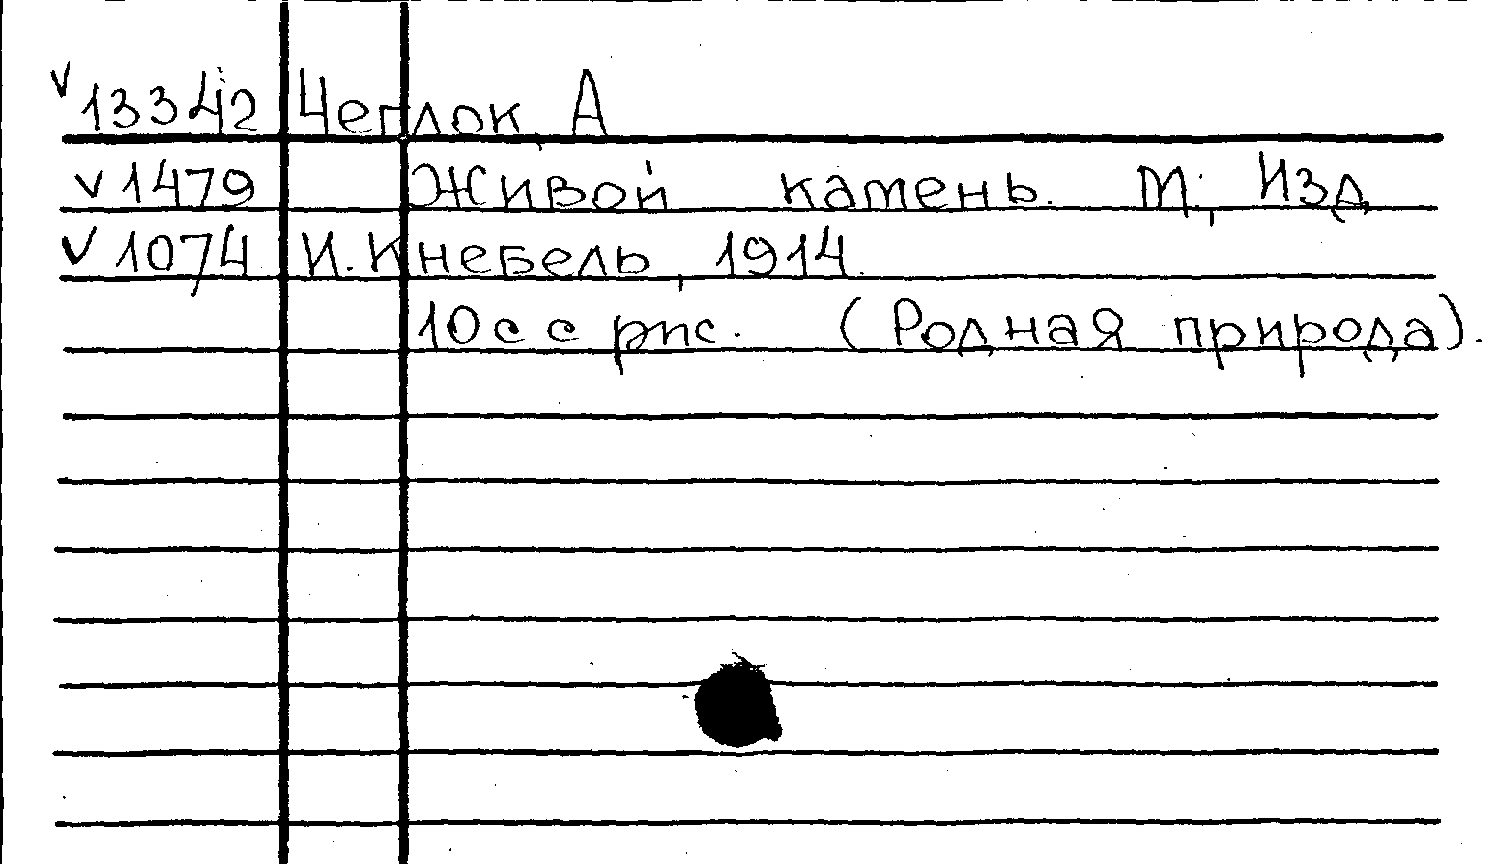 v 13342 Чеглок, А
v 1479 Живой камень. М., Изд
v 1074 И. Кнебель, 1914.
10 с с рис. (Родная природа).